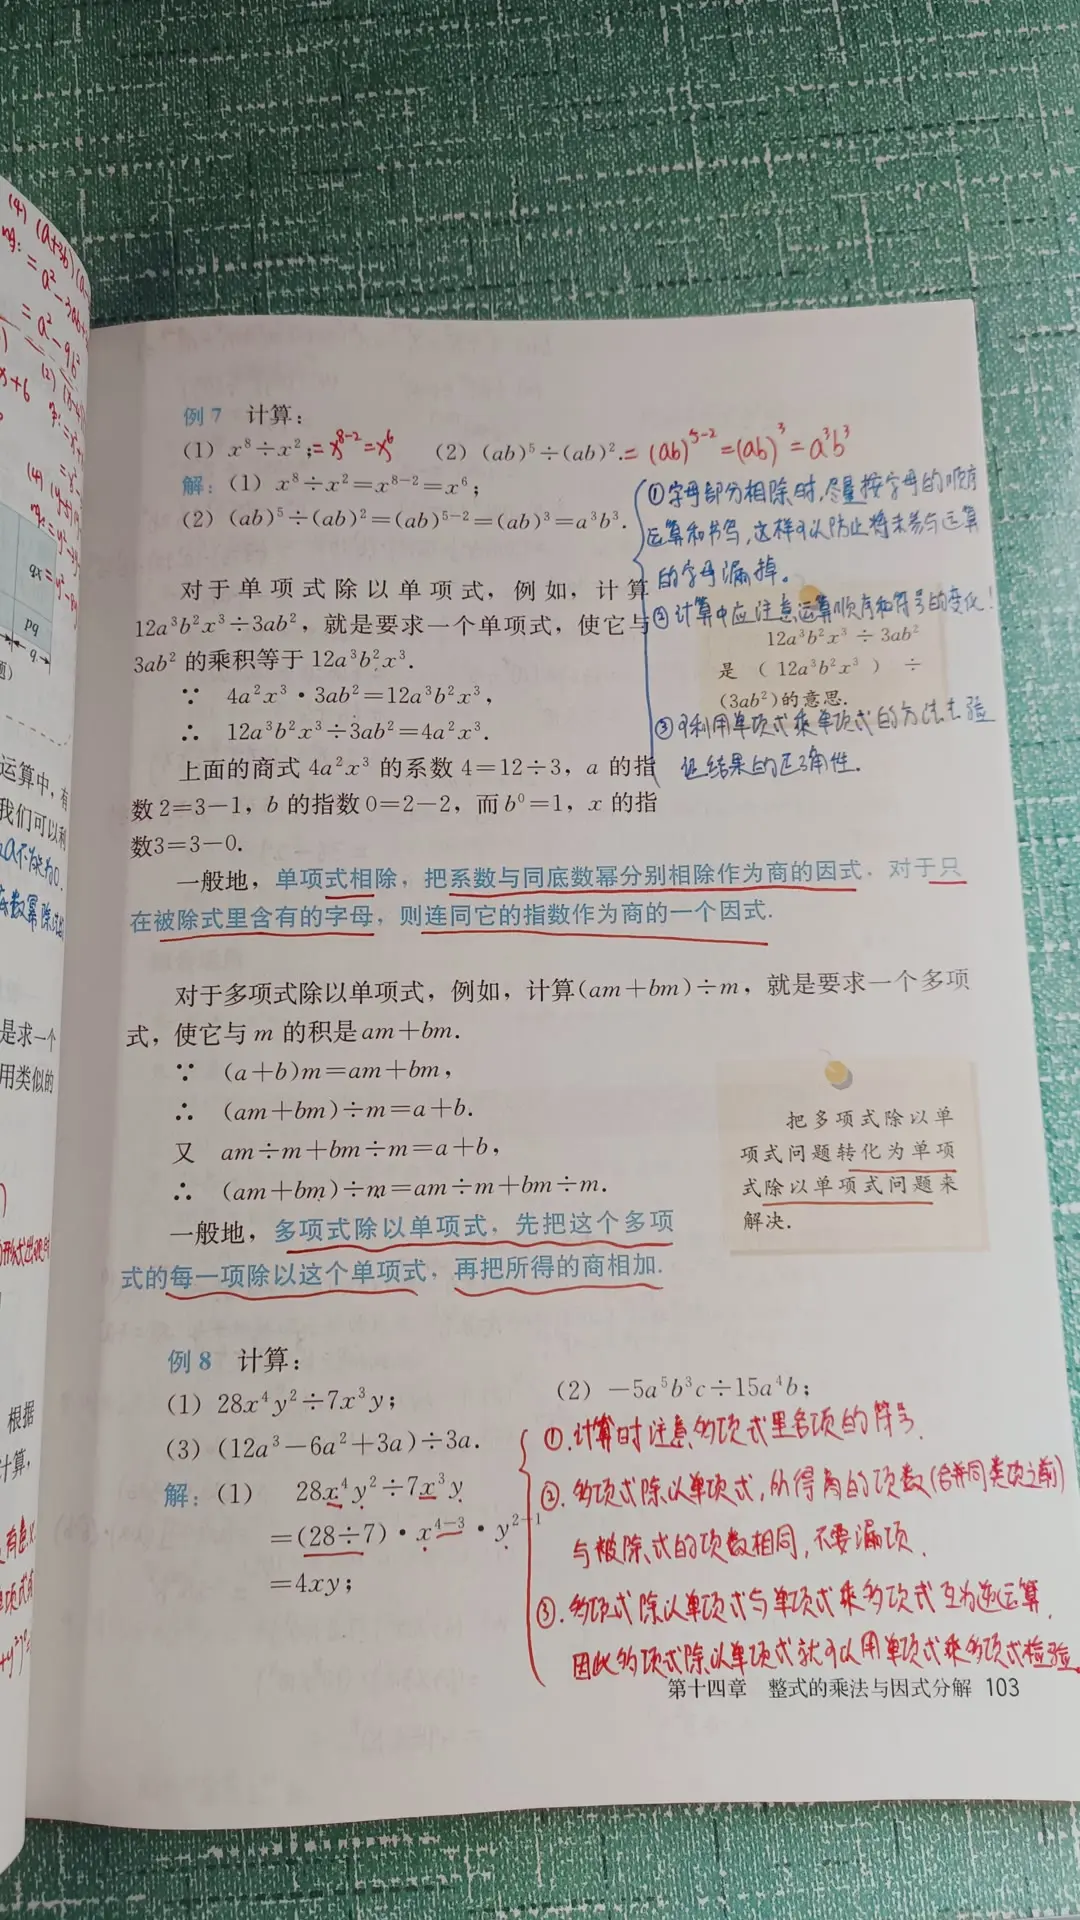 (4) (a+3b)(a-
=a²-3ab+
=a²-9b²
x+6
qx
pq
q
题)
运算中，有
我们可以利
a不为0.
是求一个
用类似的
根据
计算，
例7 计算：
(1) x⁸÷x²；=x⁸⁻²=x⁶ (2) (ab)⁵÷(ab)².=(ab)⁵⁻²=(ab)³=a³b³
解：(1) x⁸÷x²=x⁸⁻²=x⁶；
(2) (ab)⁵÷(ab)²=(ab)⁵⁻²=(ab)³=a³b³.
①字母部分相除时，尽量按字母的顺序
运算和书写，这样可以防止将未参与运算
的字母漏掉。
②计算中应注意运算顺序和符号的变化！
对于单项式除以单项式，例如，计算
12a³b²x³÷3ab²，就是要求一个单项式，使它与
3ab² 的乘积等于 12a³b²x³.
∵ 4a²x³·3ab²=12a³b²x³，
∴ 12a³b²x³÷3ab²=4a²x³.
12a³b²x³ ÷ 3ab²
是 (12a³b²x³) ÷
(3ab²)的意思.
③可利用单项式乘单项式的方法去验
证结果的正确性.
上面的商式 4a²x³ 的系数 4=12÷3，a 的指
数 2=3-1，b 的指数 0=2-2，而 b⁰=1，x 的指
数3=3-0.
一般地，单项式相除，把系数与同底数幂分别相除作为商的因式，对于只
在被除式里含有的字母，则连同它的指数作为商的一个因式.
对于多项式除以单项式，例如，计算(am+bm)÷m，就是要求一个多项
式，使它与 m 的积是 am+bm.
∵ (a+b)m=am+bm，
∴ (am+bm)÷m=a+b.
又 am÷m+bm÷m=a+b，
∴ (am+bm)÷m=am÷m+bm÷m.
把多项式除以单
项式问题转化为单项
式除以单项式问题来
解决.
一般地，多项式除以单项式，先把这个多项
式的每一项除以这个单项式，再把所得的商相加.
例8 计算：
(1) 28x⁴y²÷7x³y； (2) -5a⁵b³c÷15a⁴b；
(3) (12a³-6a²+3a)÷3a.
解：(1) 28x⁴y²÷7x³y
=(28÷7)·x⁴⁻³·y²⁻¹
=4xy；
①.计算时注意多项式里各项的符号.
②.多项式除以单项式，所得商的项数(合并同类项之前)
与被除式的项数相同，不要漏项.
③.多项式除以单项式与单项式乘多项式互为逆运算，
因此多项式除以单项式就可以用单项式乘多项式检验.
第十四章 整式的乘法与因式分解 103